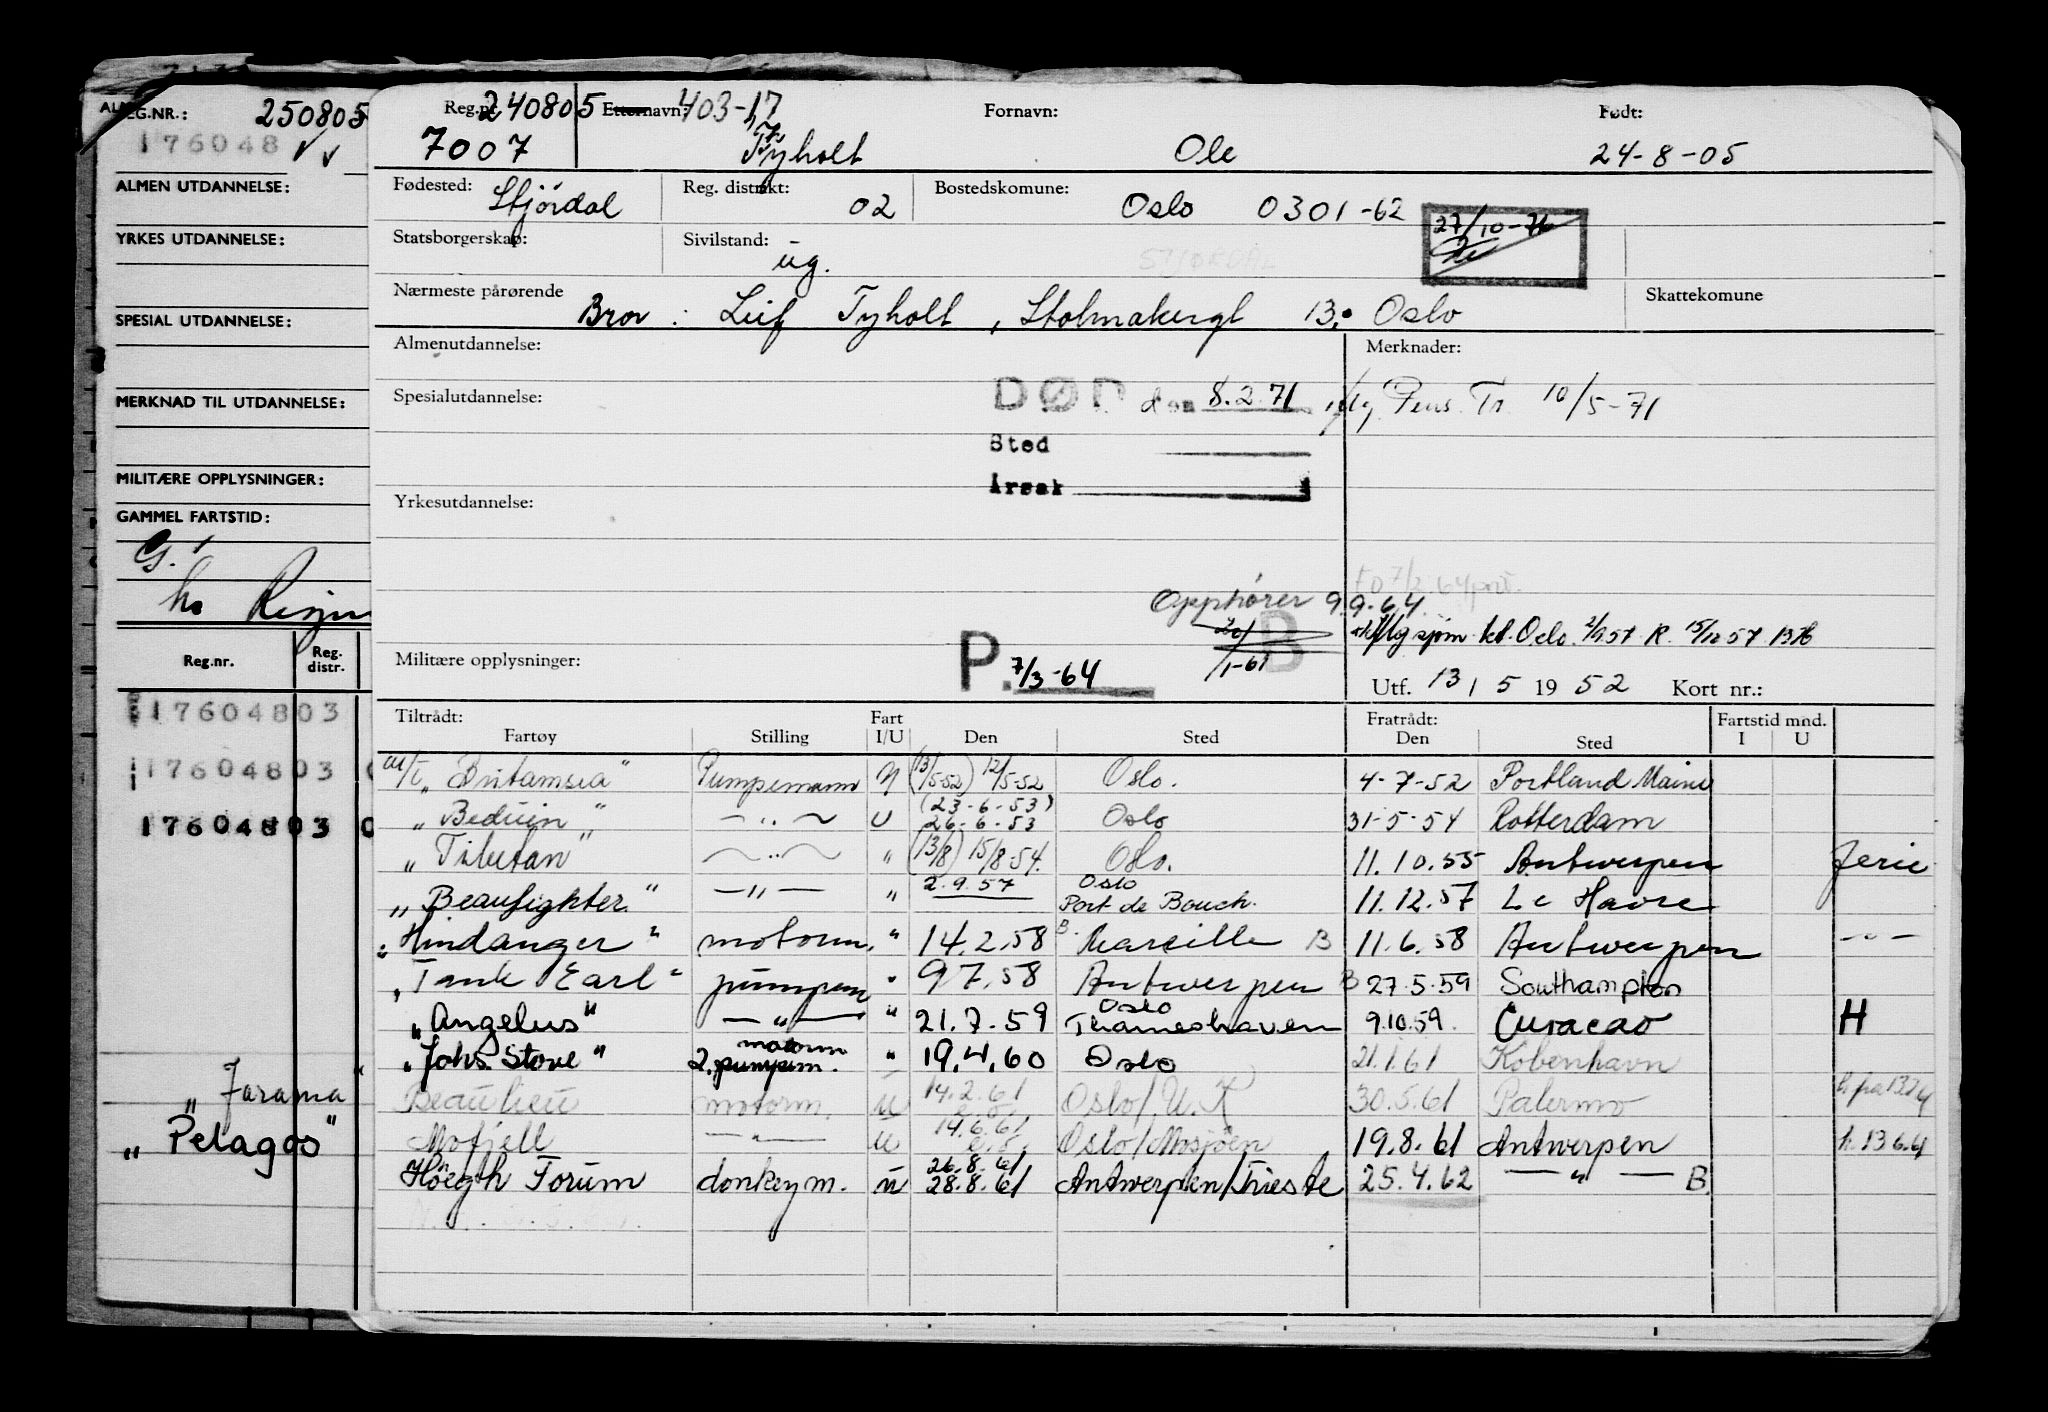 REG.NR.: 250805
176048
ALMEN UTDANNELSE:
YRKES UTDANNELSE:
SPESIAL UTDANNELSE:
MERKNAD TIL UTDANNELSE:
MILITÆRE OPPLYSNINGER:
GAMMEL FARTSTID:
G.
Reg.nr. Reg. distr.
17604803
17604803
17604803
"Jarama"
"Pelagos"
Reg.nr. 240805 Etternavn: 403-17 Fornavn: Født:
7007 Tyholt Ole 24-8-05
Fødested: Stjórdal Reg. distrikt: 02 Bostedskomune: Oslo 0301-62
27/10-76
Statsborgerskap: Sivilstand: ug. STJØRDAL
Nærmeste pårørende Bror: Leif Tyholt, Stolmakergt 13, Oslo Skattekomune
Almenutdannelse: Merknader:
Spesialutdannelse: DØD den 8.2.71 iflg. Pens. Tr. 10/5-71
Sted
Årsak
Yrkesutdannelse:
Opphörer 9.9.64
iflg sjøm. kt. Oslo 2/9 57 R. 15/12 57 1376
20/1-61 B
Militære opplysninger: P. 7/3-64
Utf. 13/5 1952 Kort nr.:
Tiltrådt: Fart Fratrådt: Fartstid mnd.
Fartøy Stilling I/U Den Sted Den Sted I U
M/T "Britamsea" Pumpemann U (13/5-52) 12/5-52 Oslo. 4-7-52 Portland Maine
"Beduin" — " — U (23-6-53) 26-6-53 Oslo 31-5-54 Rotterdam
"Tibetan" — " — " (13/8) 15/8-54. Oslo. 11.10.55 Antwerpen Ferie
"Beaufighter" — " — " 2.9.57 Oslo Port de Bouch. 11.12.57 Le Havre
"Hindanger" motorm. " 14.2.58 B. Marseille B 11.6.58 Antwerpen — " —
"Tank Earl" pumpem " 9.7.58 Antwerpen B 27.5.59 Southampton
"Angelus" — " — " 21.7.59 Oslo Thameshaven 9.10.59. Curacao H
"Johs. Stove" motorm 2. pumpem. " 19.4.60 Oslo 21.1.61 København
Beaulieu motorm. u 14.2.61 Oslo/U.K 30.5.61 Palermo
Mofjell — " — u 14.6.61 Oslo/Mosjøen 19.8.61 Antwerpen h. 13 6.61
Höegh Forum donkeym. u 26.8.61 28.8.61 Antwerpen/Trieste 25.4.62 — " — B.